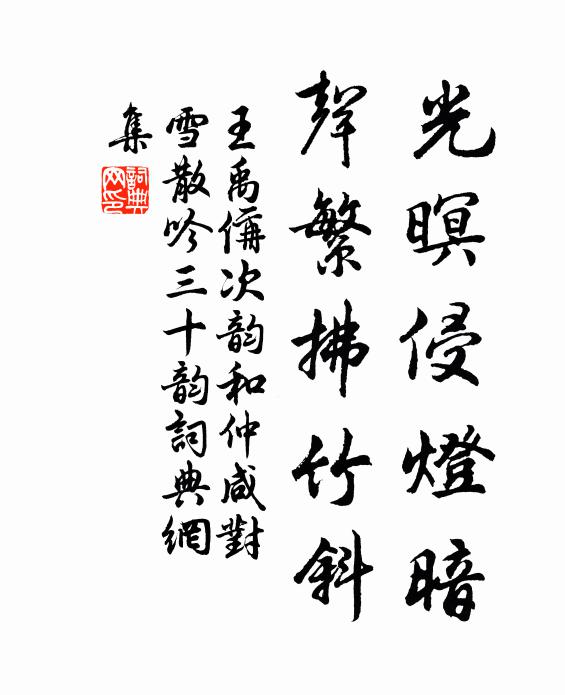 光暝侵燈暗
聲繁拂竹斜
王禹偁次韵和仲咸對
雪散吟三十韵詞典網
集
詞典
网印